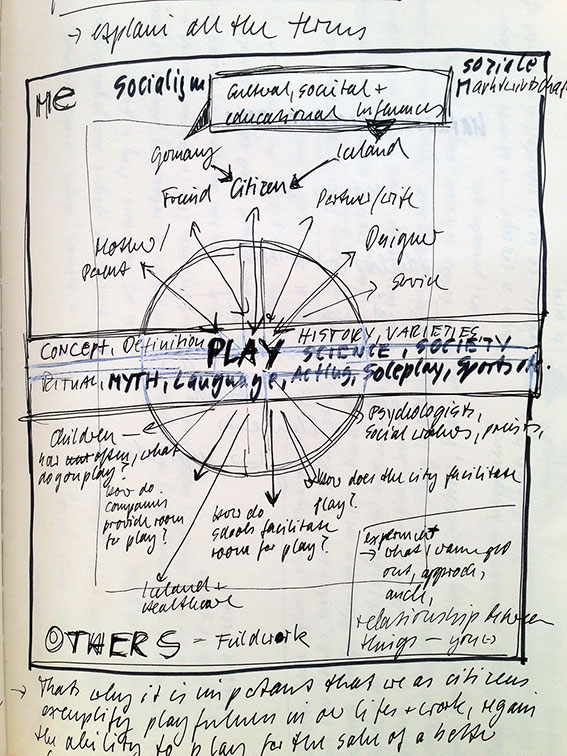 → explain all the terms
ME
Socialism
Cultural, societal +
educational influences
soziale
Marktwirtschaf
Germany
Iceland
Friend
Citizen
Partner/wife
Mother/
Parent
Designer
CONCEPT, Definition
PLAY
HISTORY, VARIETIES
SCIENCE, SOCIETY
RITUAL, MYTH, Language, Acting, Soleplay, Sports etc.
Children —
how often, what
do you play?
How do
companies
provide room
for play?
How do
schools facilitate
room for play?
How does the city facilitate
play?
Psychologists,
Social workers, priests,
Iceland +
Healthcare
experiment
→ what
out, approach,
relationship between
things —
OTHERS = Fieldwork
→ That's why it is important that we as citizens
exemplify playfulness in our lifes + work, regain
the ability to play for the sake of a better